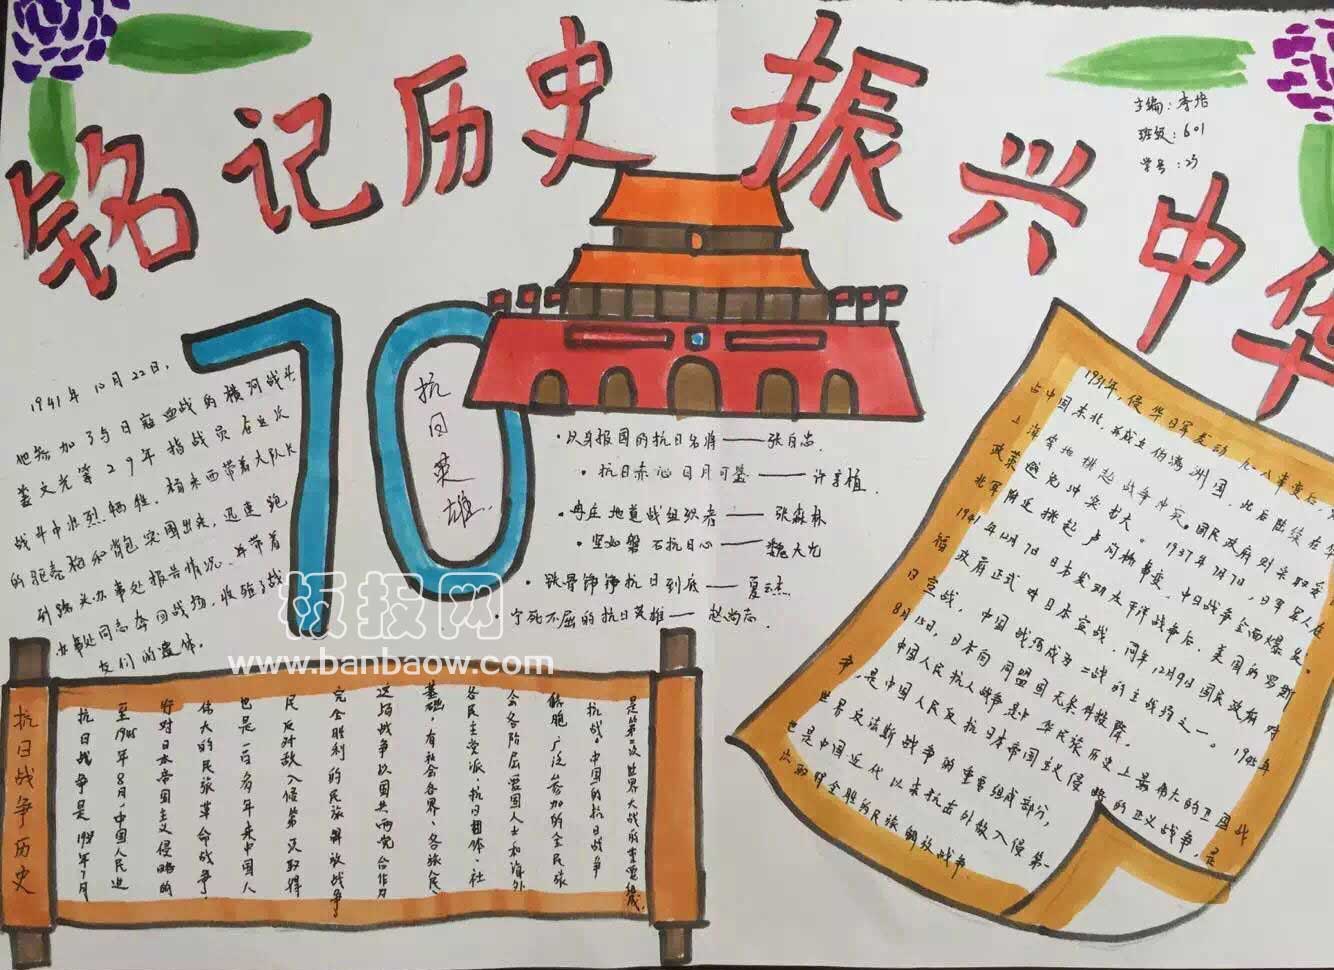 铭记历史 振兴中华
主编:李怡
班级:601
学号:25
70
抗日英雄
1941年10月22日,
他参加了与日寇血战的横河战斗
董文光等29年指战员在这次
战斗中壮烈牺牲。杨来西带着大队长
的驳壳枪和背包突围出来,迅速跑
到路头办事处报告情况,并带着
办事处同志奔回战场,收殓了战
友们的遗体。
·以身报国的抗日名将——张自忠
·抗日赤心日月可鉴——许亨植
·冉庄地道战组织者——张森林
·坚如磐石抗日心——魏大光
·铁骨铮铮抗日到底——夏云杰
·宁死不屈的抗日英雄——赵尚志
抗日战争历史
抗日战争是1937年7月
至1945年8月,中国人民进
行对日本帝国主义侵略的
伟大的民族革命战争。
也是一百多年来中国人
民反对敌人侵第一次取得
完全胜利的民族解放战争
这场战争以国共两党合作为
基础,有社会各界、各族人民
各民主党派、抗日团体、社
会各阶层爱国人士和海外
侨胞广泛参加的全民族
抗战。中国的抗日战争
是第二次世界大战的重要组成
1931年,侵华日军发动九一八事变后
占中国东北,并成立伪满洲国,此后陆续在华
上海等地挑起战争冲突。国民政府则采取妥
政策避免冲突扩大。1937年7月7日,日军军人在
北平附近挑起卢沟桥事变,中日战争全面爆发。
1941年12月7日日本发动太平洋战争后,美国的罗斯
福政府正式对日本宣战,同年12月9日国民政府对
日宣战,中国战场成为二战的主战场之一。1945年
8月15日,日本向同盟国无条件投降。
中国人民抗人战争是中华民族历史上最伟大的卫国战
争,是中国人民反抗日本帝国主义侵略的正义战争,是
世界反法斯战争的重要组成部分,
也是中国近代以来抗击外敌入侵第一
次取得全胜的民族解放战争
板报网
www.banbaow.com